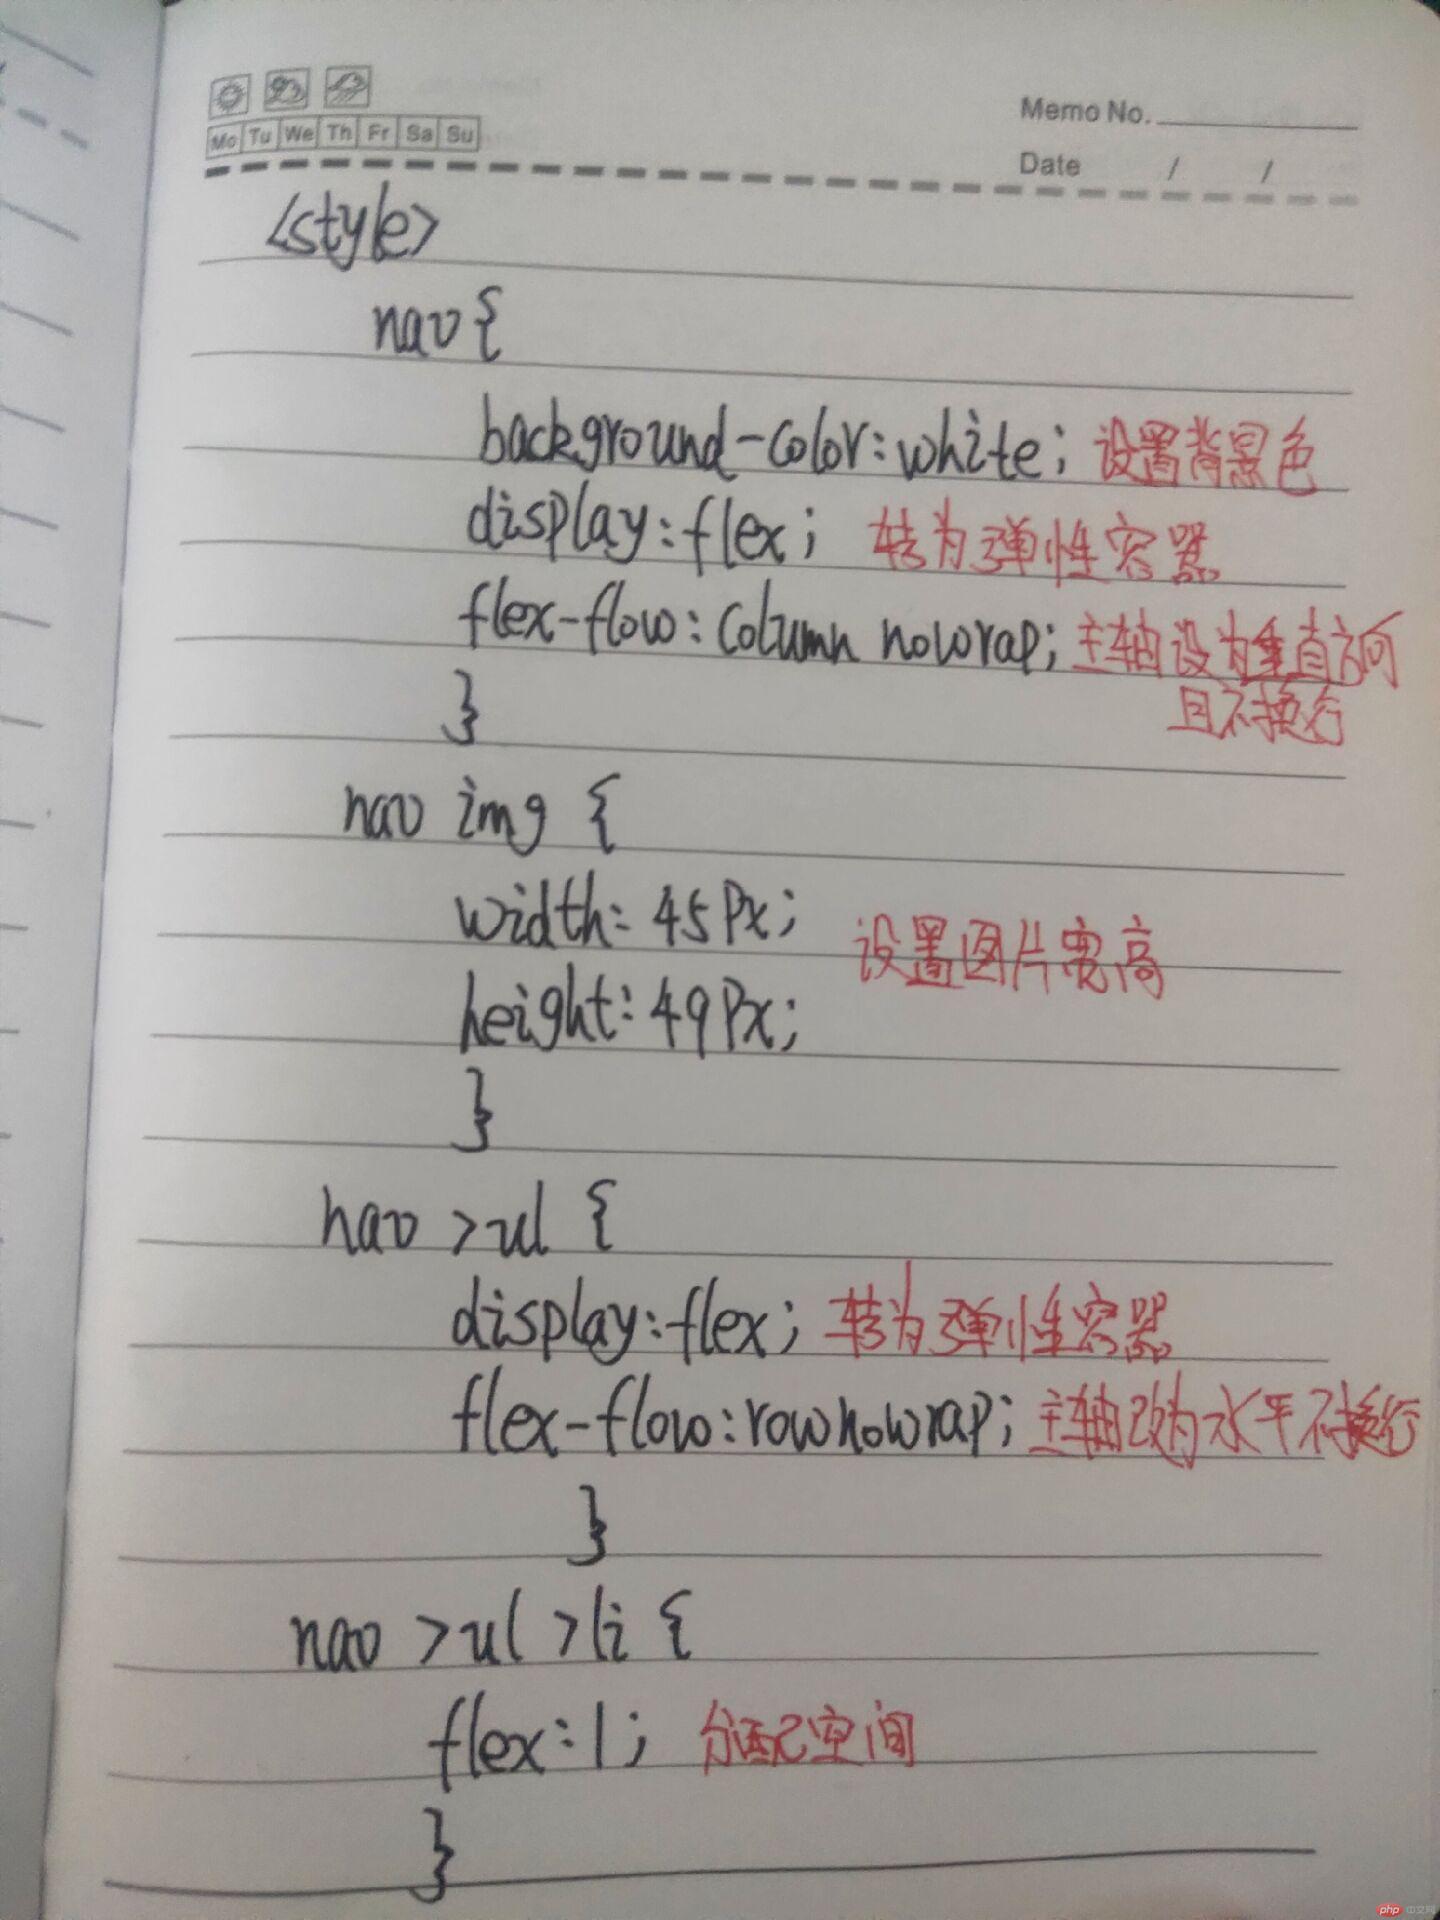 Memo No.
Mo Tu We Th Fr Sa Su
Date / /
<style>
nav {
background-color:white; 设置背景色
display:flex; 转为弹性容器
flex-flow:column nowrap; 主轴设为垂直方向
且不换行
}
nav img {
width:45px;
设置图片宽高
height:49px;
}
nav >ul {
display:flex; 转为弹性容器
flex-flow:row nowrap; 主轴改为水平不换行
}
nav >ul >li {
flex:1; 分配空间
}
php 中文网